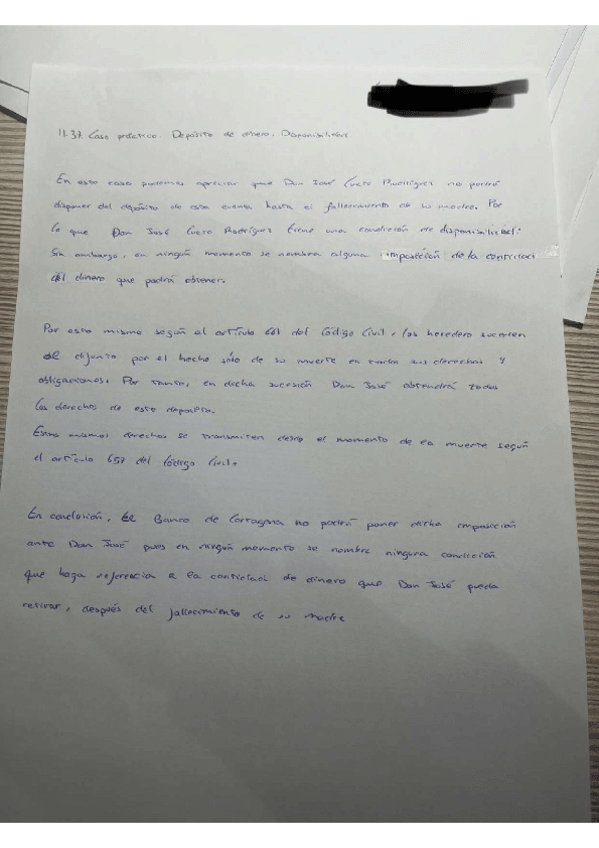 11.37 Caso práctico. Depósito de dinero. Disponibilidad.
En este caso podemos apreciar que Don José Cuero Rodríguez no podrá
disponer del depósito de esta cuenta hasta el fallecimiento de su madre. Por
lo que Don José Cuero Rodríguez tiene una condición de disponibilidad.
Sin embargo, en ningún momento se nombra alguna imposición de la cantidad
del dinero que podrá obtener.
Por esto mismo según el artículo 661 del Código Civil, los heredero suceden
al difunto por el hecho sólo de su muerte en todos sus derechos y
obligaciones. Por tanto, en dicha sucesión Don José obtendrá todos
los derechos de este depósito.
Estos mismos derechos se transmiten desde el momento de la muerte según
el artículo 657 del Código Civil.
En conclusión, el Banco de Cartagena no podrá poner dicha imposición
ante Don José pues en ningún momento se nombre ninguna condición
que haga referencia a la cantidad de dinero que Don José pueda
retirar, después del fallecimiento de su madre